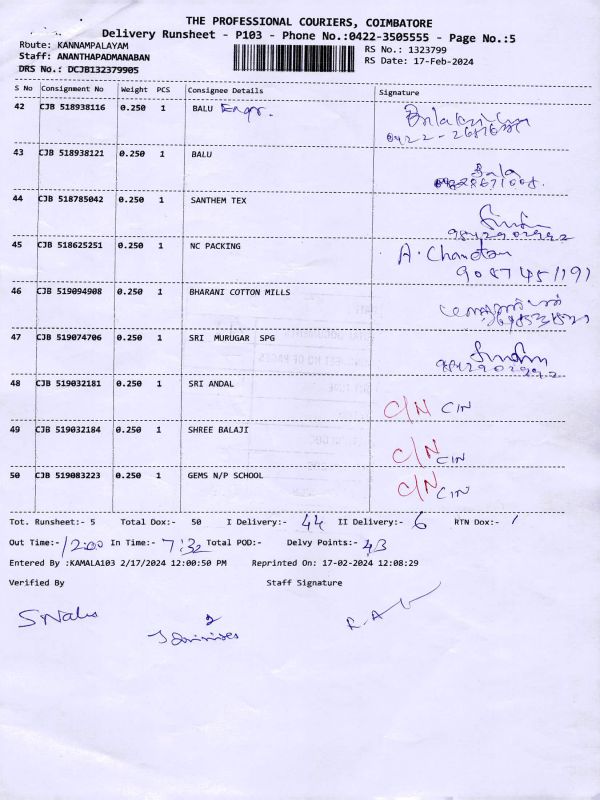 THE PROFESSIONAL COURIERS, COIMBATORE
Delivery Runsheet - P103 - Phone No.:0422-3505555 - Page No.:5
Route: KANNAMPALAYAM
RS No.: 1323799
Staff: ANANTHAPADMANABAN
RS Date: 17-Feb-2024
DRS No.: DCJB132379905
S No Consignment No Weight PCS Consignee Details Signature
42 CJB 518938116 0.250 1 BALU Engr.
43 CJB 518938121 0.250 1 BALU
Bala
44 CJB 518785042 0.250 1 SANTHEM TEX
9842902992
45 CJB 518625251 0.250 1 NC PACKING A. Chandan
9087451191
46 CJB 519094908 0.250 1 BHARANI COTTON MILLS
47 CJB 519074706 0.250 1 SRI MURUGAR SPG
9842902992
48 CJB 519032181 0.250 1 SRI ANDAL
C/N CIN
49 CJB 519032184 0.250 1 SHREE BALAJI
C/N CIN
50 CJB 519083223 0.250 1 GEMS N/P SCHOOL
C/N CIN
Tot. Runsheet:- 5 Total Dox:- 50 I Delivery:- 44 II Delivery:- 6 RTN Dox:- 1
Out Time:- 12:00 In Time:- 7:32 Total POD:- Delvy Points:- 43
Entered By :KAMALA103 2/17/2024 12:00:50 PM Reprinted On: 17-02-2024 12:08:29
Verified By Staff Signature